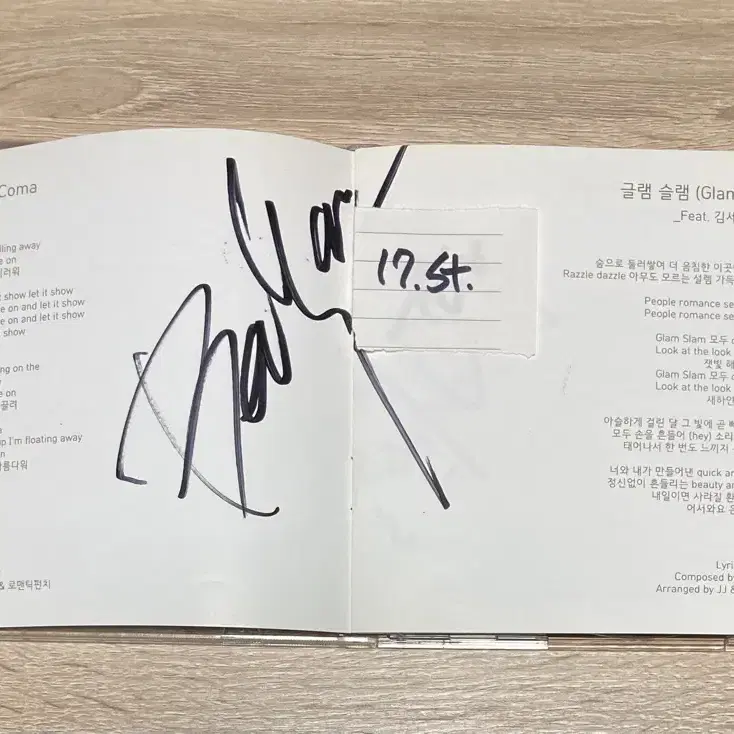 Coma
lling away
e on
show let it show
e on and let it show
e on and let it show
show
ng on the
e on
끌려
p I'm floating away
on
름다워
& 로맨틱펀치
17. St.
글램 슬램 (Glam
_Feat. 김세
숭으로 둘러쌓여 더 음침한 이곳
Razzle dazzle 아무도 모르는 설렘 가득
People romance se
People romance se
Glam Slam 모두
Look at the look
잿빛 해
Glam Slam 모두
Look at the look
새하얀
아슬하게 걸린 달 그 빛에 곧
모두 손을 흔들어 (hey) 소리
태어나서 한 번도 느끼지
너와 내가 만들어낸 quick an
정신없이 흔들리는 beauty an
내일이면 사라질 환
어서와요 은
Lyri
Composed by
Arranged by JJ &